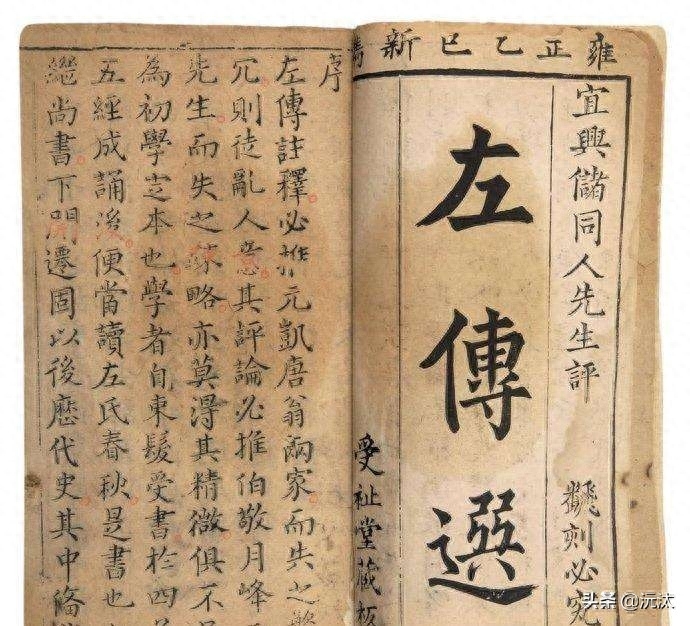 雍正乙巳新鐫
宜興儲同人先生評 飜刻必究
左傳選
受祉堂藏板
序
左傳註釋必推元凱唐翁兩家而失之
冗則徒亂人意其評論必推伯敬月峰
先生而失之疎略亦莫得其精微俱不
為初學定本也學者自束髮受書於四
五經成誦後便當讀左氏春秋是書也
繼尚書下開遷固以後歷代史其中條
头条 @沅汰